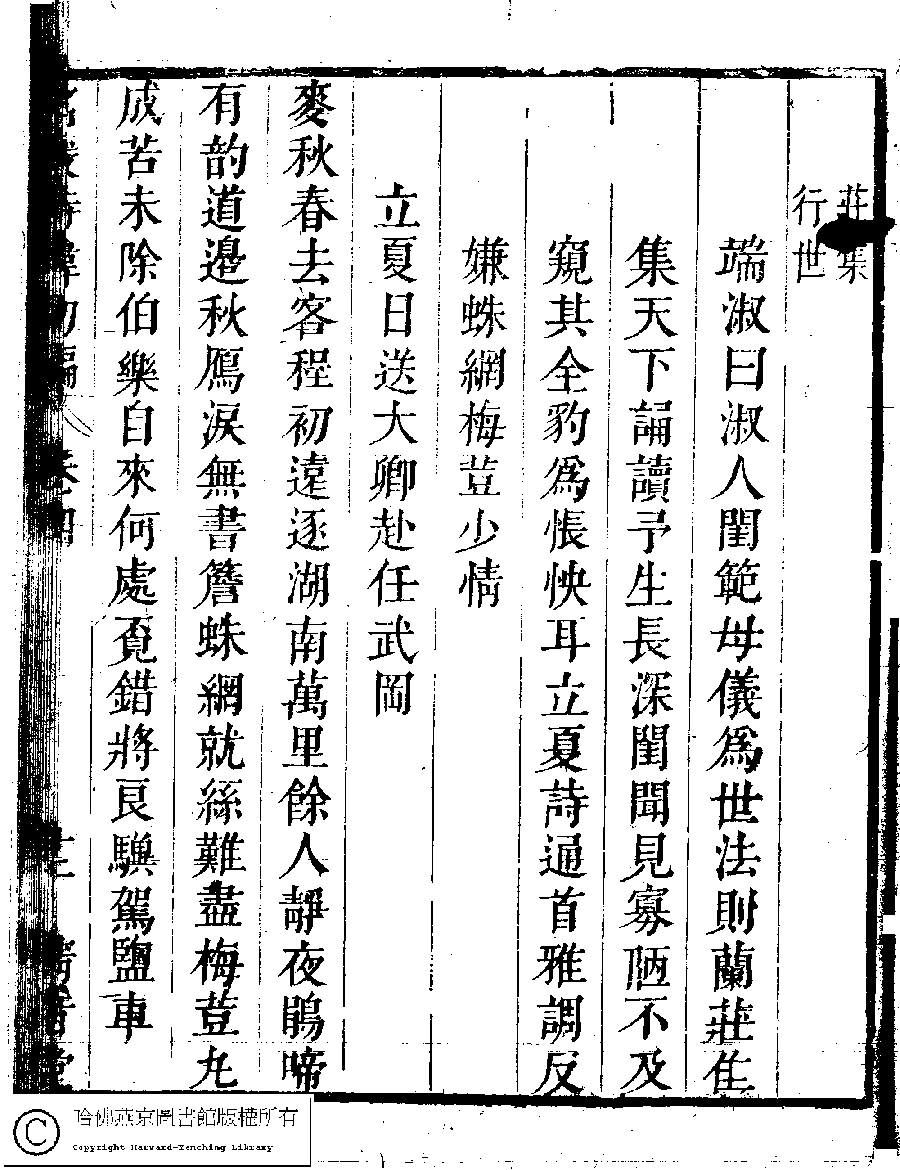 莊集
行世
端淑曰淑人閨範母儀爲世法則蘭莊隹
集天下誦讀予生長深閨聞見寡陋不及
窺其全豹爲悵怏耳立夏詩通首雅調反
嫌蛛網梅荳少情
立夏日送大卿赴任武岡
麥秋春去客程初遠逐湖南萬里餘人靜夜鵑啼
有韵道邉秋鴈淚無書簷蛛網就絲難盡梅荳丸
成苦未除伯樂自來何處覔錯將良驥駕鹽車
名媛詩緯初編 卷四 十二
哈佛燕京圖書館版權所有
Copyright Harvard-Yenching Library